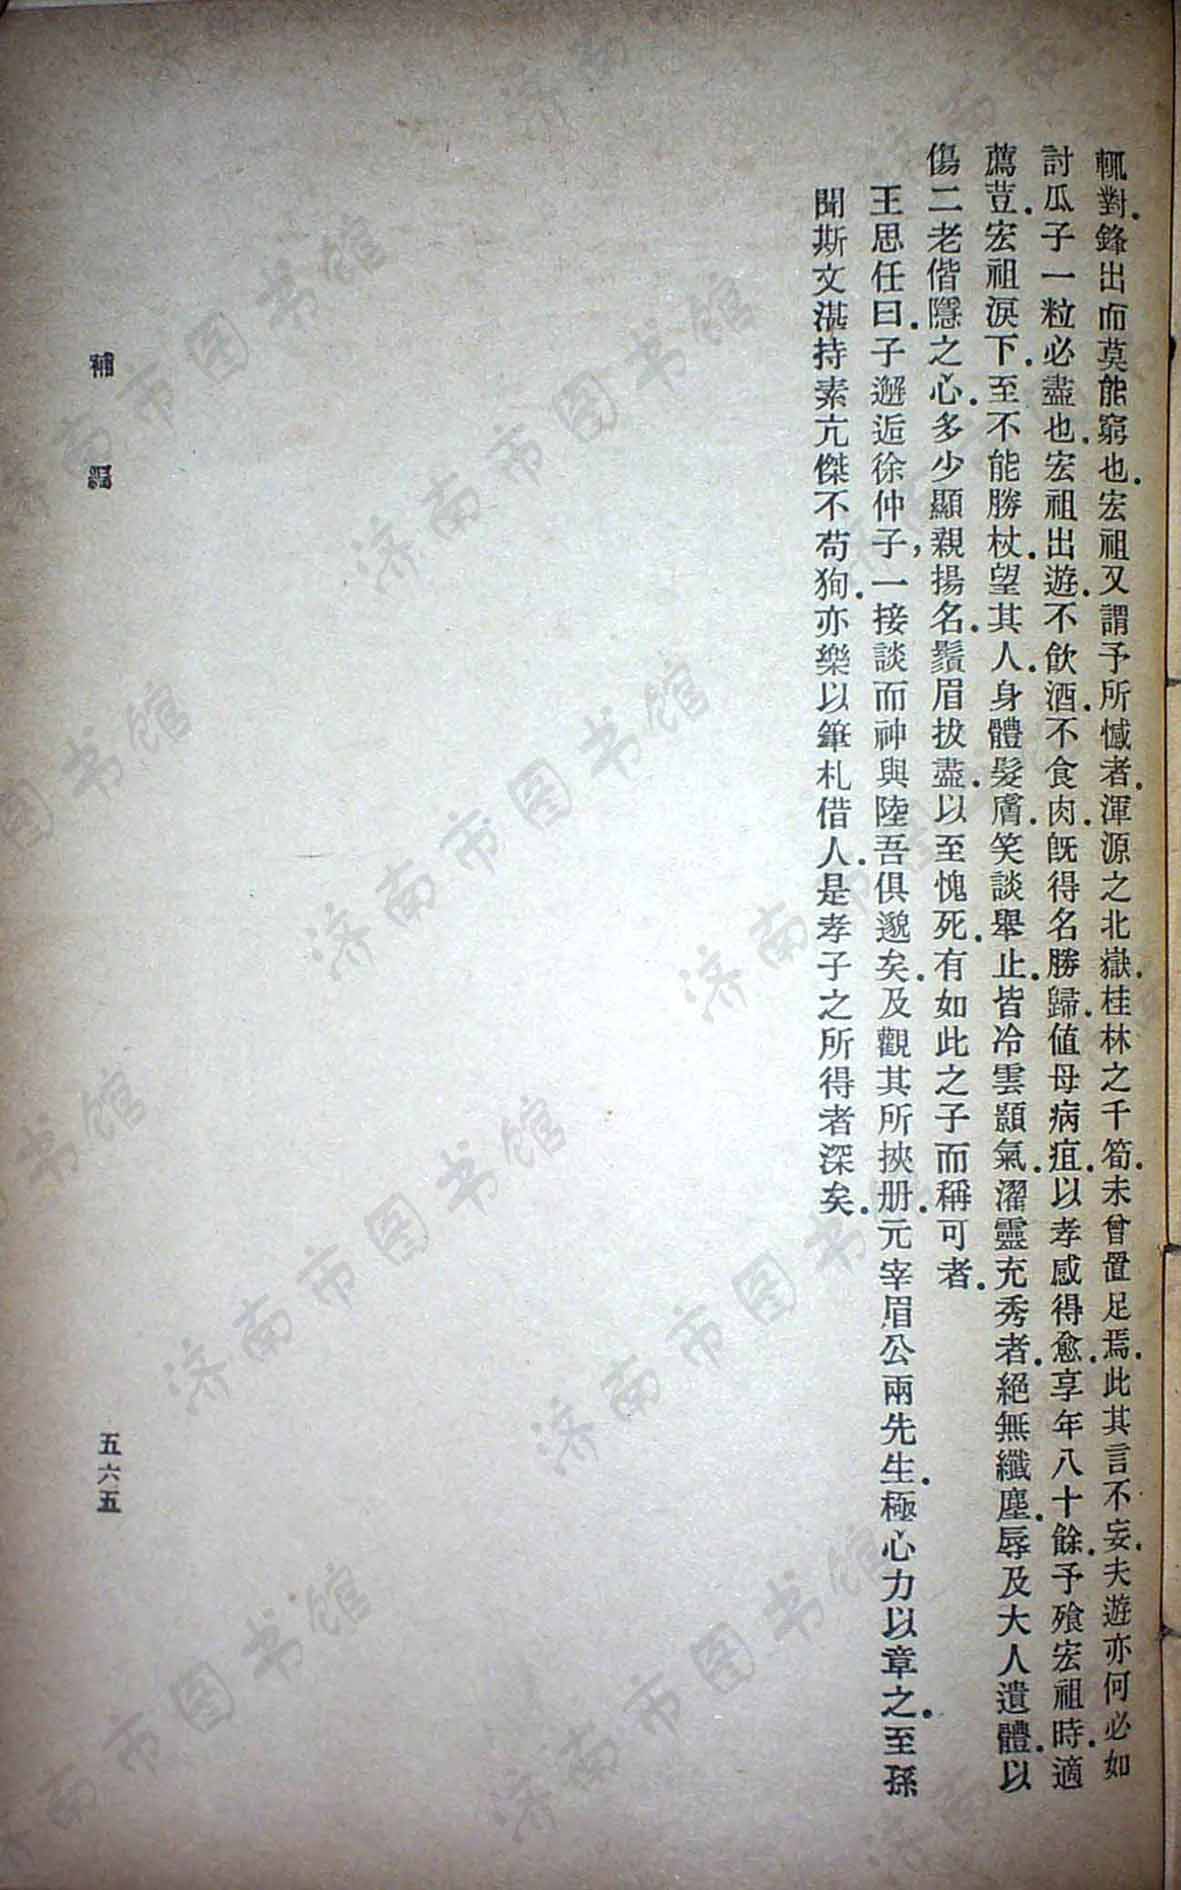 輒對鋒出而莫能窮也宏祖又謂予所憾者渾源之北嶽桂林之千筍未曾置足焉此其言不妄夫遊亦何必如
討瓜子一粒必盡也宏祖出遊不飲酒不食肉既得名勝歸值母病疽以孝感得愈享年八十餘予飱宏祖時適
薦荳宏祖淚下至不能勝杖望其人身體髮膚笑談舉止皆冷雲顥氣濯靈充秀者絕無纖塵辱及大人遺體以
傷二老偕隱之心多少顯親揚名鬚眉拔盡以至愧死有如此之子而稱可者
王思任曰子邂逅徐仲子，一接談而神與陸吾俱邈矣及觀其所挾册元宰眉公兩先生極心力以章之至孫
聞斯文湛持素亢傑不苟狥亦樂以筆札借人是孝子之所得者深矣
補編
五六五
济南市图书馆